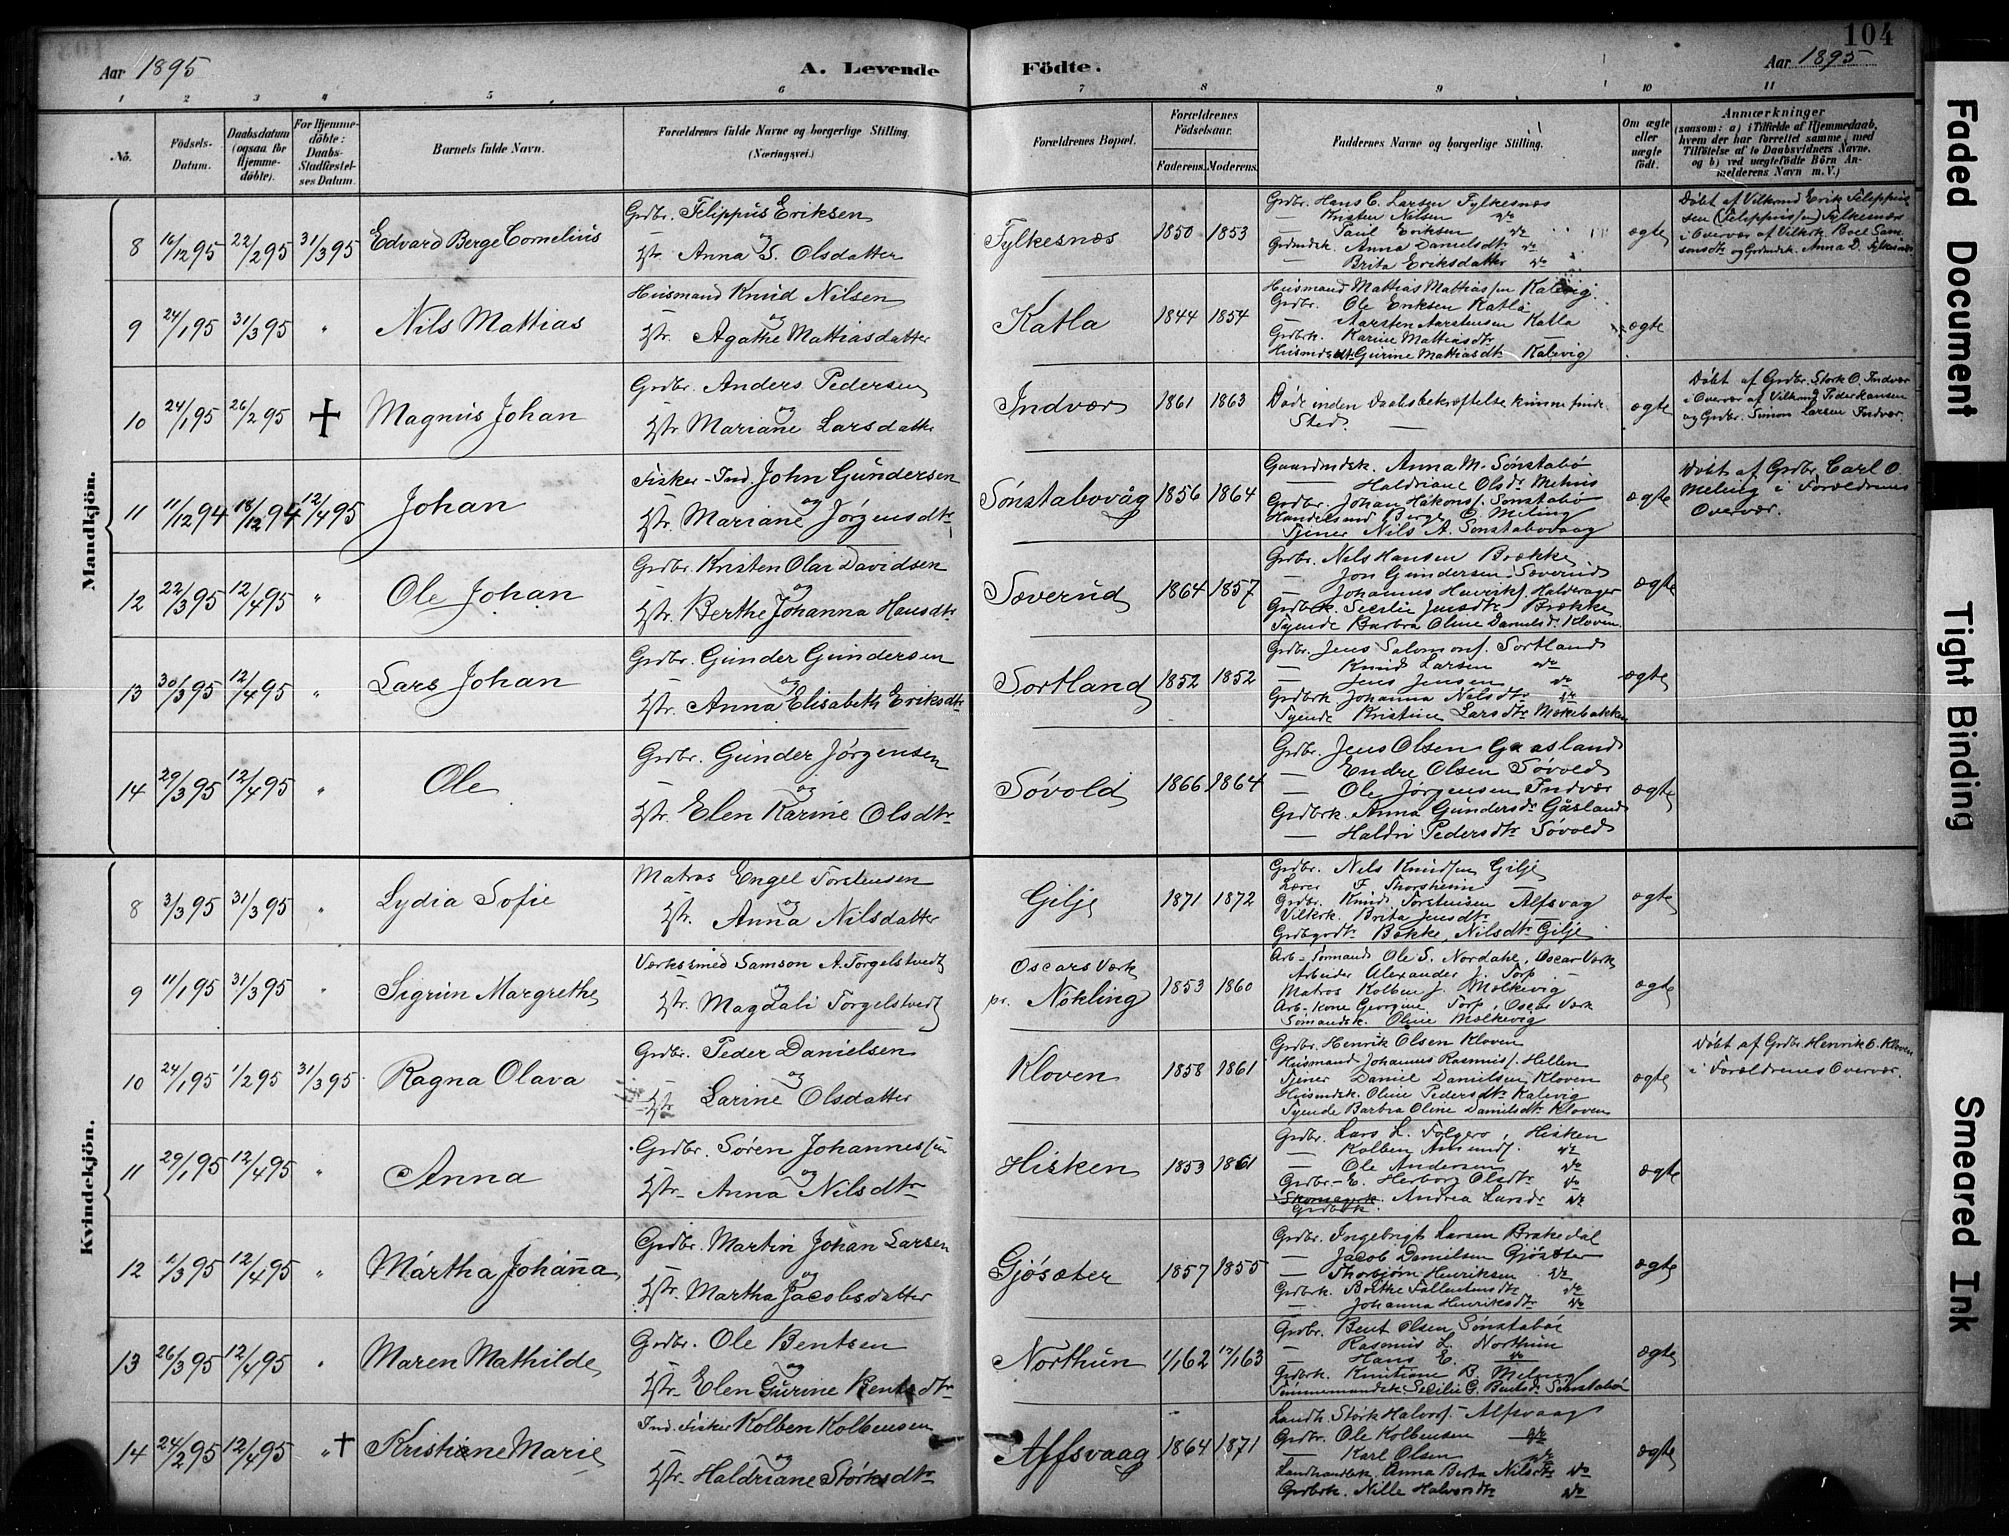 104
Aar 1895
A. Levende
Födte.
Aar 1895
1 2 3 4 5 6 7 8 9 10 11
No.
Födsels-Datum.
Daabsdatum (ogsaa för Hjemme-döbte).
For Hjemme-döbte: Daabs-Stadfæstel-ses Datum.
Barnets fulde Navn.
Forældrenes fulde Navne og borgerlige Stilling.
(Næringsvei.)
Forældrenes Bopæl.
Forældrenes Födselsaar.
Faderens. Moderens.
Faddernes Navne og borgerlige Stilling.
Om ægte eller uægte födt.
Anmærkninger
(saasom: a) i Tilfælde af Hjemmedaab,
hvem der har forrettet samme, med
Tilföielse af to Daabsvidners Navne,
og b) ved uægtefödte Börn An-
melderens Navn m. V.)
Mandkjön.
8 16/12 95 22/2 95 31/3 95 Edvard Berge Cornelius
Grdbr. Filippus Eriksen
og
Hstr. Anna S. Olsdatter
Fylkesnæs 1850 1853
Grdbr. Hans C. Larsen Fylkesnæs
— Kristen Nilsen do
— Paul Eriksen do
Grdmdsk. Anna Danielsdtr do
Brita Eriksdatter do
ægte
Döbt af Vilkmd Erik Filippus-
sen (Filippussen) Fylkesnæs
i Overvær af Vilkrk. Boel Sam-
sonsdtr og Grdmdsk. Anna D. Fylkesnæs
9 24/1 95 31/3 95 " Nils Mattias
Husmand Knud Nilsen
og
Hstr. Agathe Mattiasdatter
Katla 1844 1854
Husmand Mattias Mattiassen Kalevig
Grdbr. Ole Eriksen Katla
— Aarsten Aarstensen Katla
Grdbrk. Karine Mattiasdtr —
Husmds dtr Gurine Mattiasdtr Kalevig
ægte
10 24/1 95 26/2 95 ✝ Magnus Johan
Grdbr. Anders Pedersen
og
Hstr. Mariane Larsdatter
Indvær 1861 1863
Döde inden Daabsbekræftelse kunne finde
Sted. —
ægte
Döbt af Grdbr. Stork O. Indvær
i Overvær af Vilkmd Peder Hansen
og Grdbr. Simon Larsen Indvær.
11 11/12 94 18/12 94 12/4 95 Johan
Fisker-Ind. John Gundersen
og
Hstr. Mariane Jørgensdtr
Sönstabovåg 1856 1864
Gaardmdsk. Anna M. Sönstabø
— Haldriane Olsdr Mehus
Grdbr. Johan Håkons. Sönstabø
Handelsmd Berge O. Meling
Tjener Nils A. Sønstabovaag
ægte
Döbt af Grdbr. Carl O.
Meling i Forældrenes
Overvær.
12 22/3 95 12/4 95 " Ole Johan
Grdbr. Kristen Olai Davidsen
og
Hstr. Berthe Johanna Hansdtr
Sæverud 1864 1857
Grdbr. Nils Hansen Brække
— Jon Gundersen Sæverud
— Johannes Henriks. Halderager
Grdbrk. Secilie Jensdtr Brække
Tyende Barbra Oline Danielsdr Kloven
ægte
13 30/3 95 12/4 95 " Lars Johan
Grdbr. Gunder Gundersen
og
Hstr. Anna Elisabeth Eriksdtr
Sortland 1852 1852
Grdbr. Jens Salomons. Sortland
— Knud Larsen do
— Jens Jensen do
Grdbrk Johanna Nilsdtr do
Tyende Kristine Larsdtr Mækebakken
ægte
14 29/3 95 12/4 95 " Ole
Grdbr. Gunder Jørgensen
og
Hstr. Elen Karine Olsdtr
Søvold 1866 1864
Grdbr. Jens Olsen Gaasland
— Endre Olsen Søvold
— Ole Jørgensen Indvær
Grdbrk. Anna Gundersdr Gåsland
— Haldri Pedersdtr Søvold
ægte
Kvindekjön.
8 3/3 95 31/3 95 " Lydia Sofie
Matros Engel Torstensen
og
Hstr. Anna Nilsdatter
Gilje 1871 1872
Grdbr. Nils Knudsen Gilje
Lærer F. Thorsheim —
Grdbr. Knud Torstensen Alfsvag
Vilkrk. Brita Jensdtr —
Bække Nilsdtr Gilje
ægte
9 11/1 95 31/3 95 " Sigrun Margrethe
Værkssmed Samson A. Torgelstvedt
og
Hstr. Magdali Torgelstvedt
Oscars Værk
pr. Nøkling 1853 1860
Arb-Formand Ole S. Nordahl, Oscar Værk
Arbeider Alexander J. Torp —
Matros Kolben J. Mælkevig
Arb-Kone Georgine Torp, Oscar Værk
Sømandsk. Oline Mælkevig
ægte
10 24/1 95 1/2 95 31/3 95 Ragna Olava
Grdbr. Peder Danielsen
og
Hstr. Larine Olsdatter
Kloven 1858 1861
Grdbr. Henrik Olsen Kloven
Husmand Johannes Rasmuss. Hellen
Tjener Daniel Danielsen Kloven
Husmdsk. Oline Pedersdtr Kalevig
Tyende Barbra Oline Danielsdtr Kloven
ægte
Döbt af Grdbr Henrik O. Kloven
i Forældrenes Overvær.
11 29/1 95 12/4 95 " Anna
Grdbr. Søren Johannessen
og
Hstr. Anna Nilsdtr
Hisken 1853 1861
Grdbr. Lars L. Folgerø, Hisken
— Kolben Amunds. do
— Ole Andersen do
Grdbr-E. Herborg Olsdtr do
Grdbrk. Andrea Larsdr do
ægte
12 1/3 95 12/4 95 " Martha Johanna
Grdbr. Martin Johan Larsen
og
Hstr. Martha Jacobsdatter
Gjøsæter 1857 1855
Grdbr. Ingebrigt Larsen Brakedal
— Jacob Danielsen Gjøsæter
— Thorbjørn Henriksen do
Grdbrk. Berthe Fallentensdtr do
— Johanna Henriksdtr do
ægte
13 26/3 95 12/4 95 " Maren Mathilde
Grdbr. Ole Bentsen
og
Hstr. Elen Gurine Bentsdtr
Northun 1/1 62 17/1 63
Grdbr. Bent Olsen Sønstabø
— Rasmus L. Northun
— Hans E. do
Grdbrk. Kristiane B. Meling
Tømmermandsk. Secilie G. Bentsdr Sønstabø
ægte
14 24/2 95 12/4 95 " ✝ Kristiane Marie
Ind. Fisker Kolben Kolbensen
og
Hstr. Haldriane Størksdtr
Affsvaag 1864 1871
Landh. Størk Halvors. Alfsvaag
Grdbr. Ole Kolbensen do
— Karl Olsen do
Landhandlerk. Anna Berta Nilsdtr do
Grdbrk. Nille Halvorsdtr do
ægte
Faded Document
Tight Binding
Smeared Ink